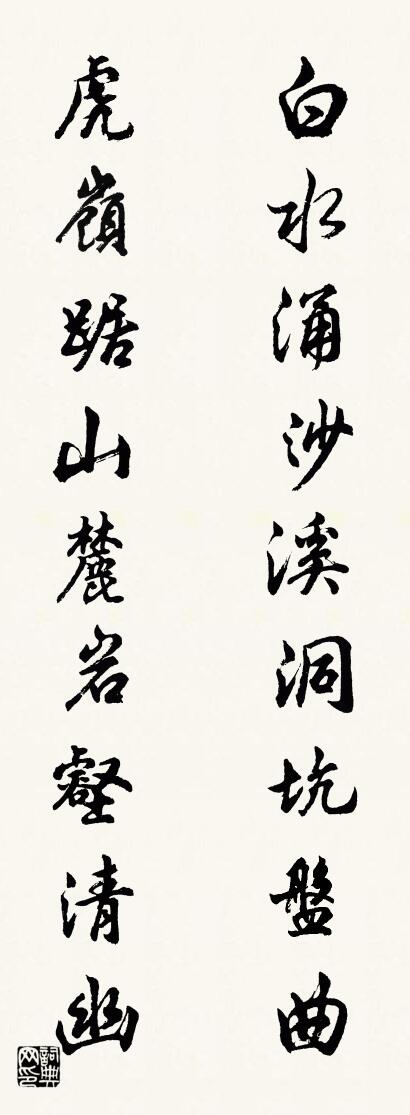 白水涌沙溪洞坑盤曲
虎嶺踞山麓岩壑清幽
詞典網印